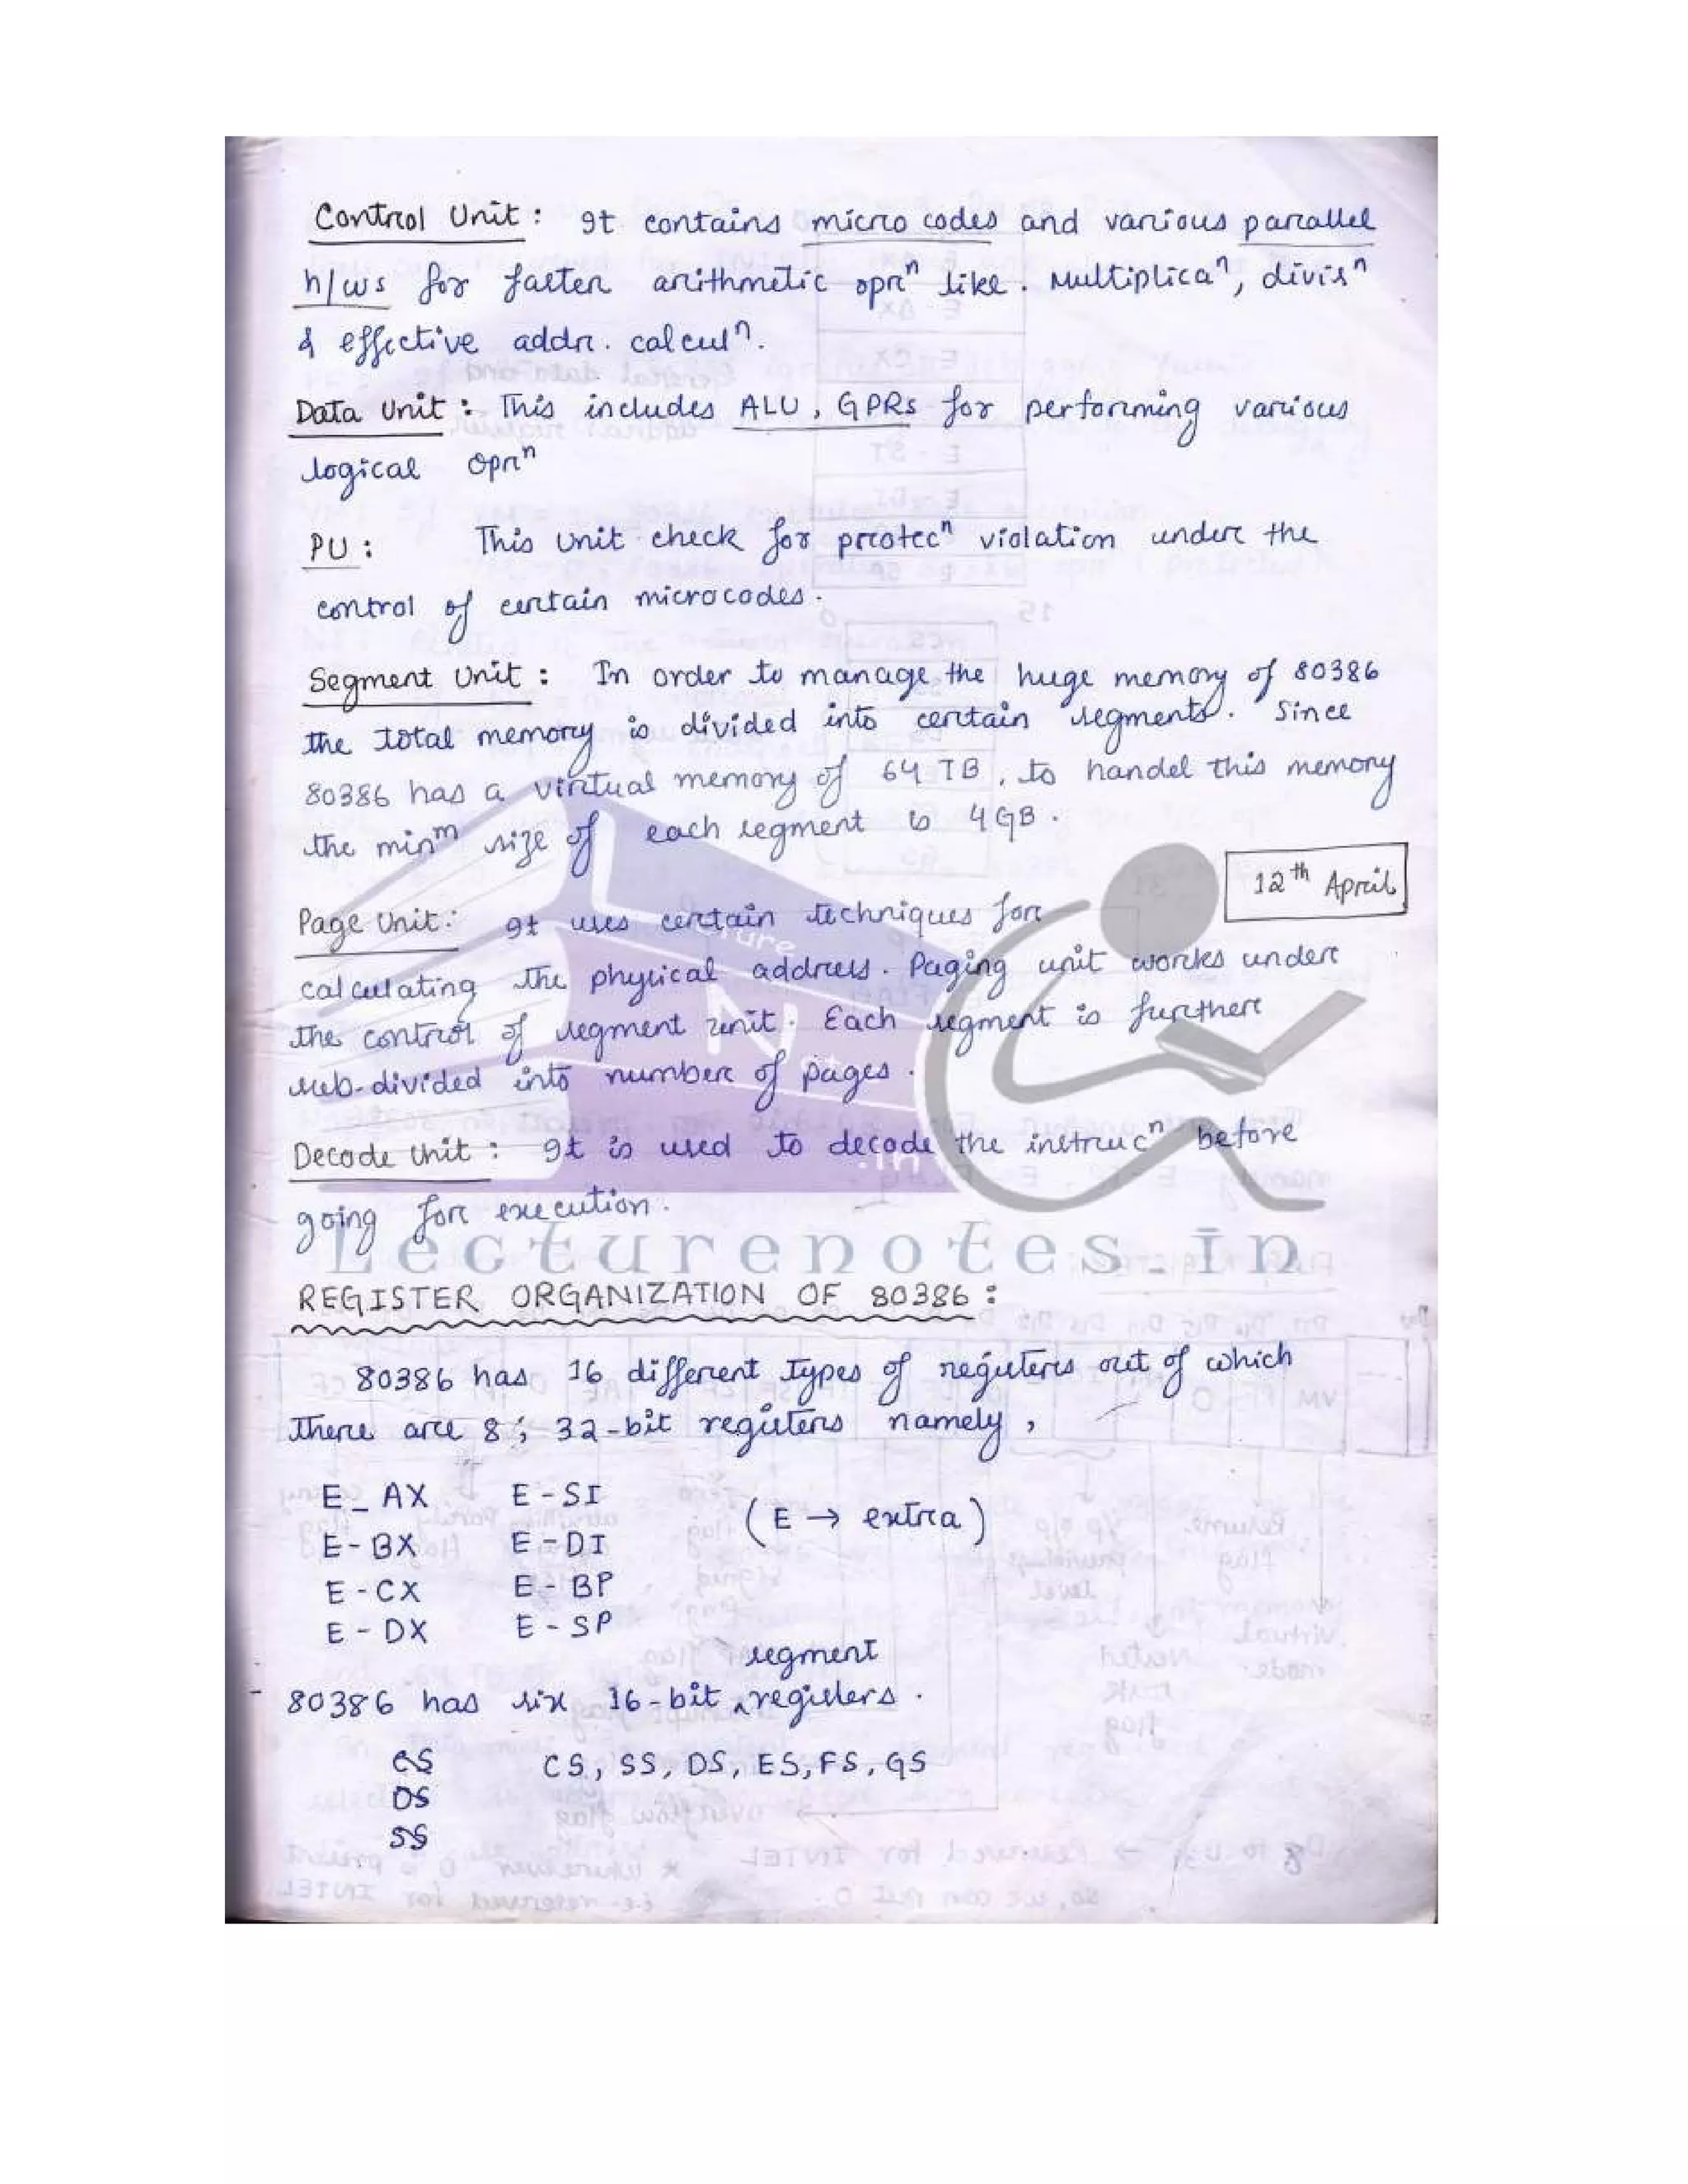 Control Unit : It contains micro codes and various parallel
h/ws for faster arithmetic oprⁿ like. Multiplicaⁿ, divisⁿ
& effective addr. calculⁿ.
Data Unit : This includes ALU, GPRs for performing various
logical oprⁿ
PU : This unit check for protecⁿ violation under the
control of certain microcodes.
Segment Unit : In order to manage the huge memory of 80386
the total memory is divided into certain segments. Since
80386 has a virtual memory of 64 TB, to handel this memory
the minᵐ size of each segment is 4 GB.
12th April
Page Unit: It uses certain techniques for
calculating the physical address. Paging unit works under
the control of segment unit. Each segment is further
sub-divided into number of pages.
Decode Unit : It is used to decode the instrucⁿ before
going for execution.
Lecturenotes.in
REGISTER ORGANIZATION OF 80386 :
80386 has 16 different types of registers out of which
there are 8 ; 32-bit registers namely,
E_AX E-SI
(E → extra)
E-BX E-DI
E-CX E-BP
E-DX E-SP
segment
- 80386 has six 16-bit ^registers.
CS CS, SS, DS, ES, FS, GS
DS
SS